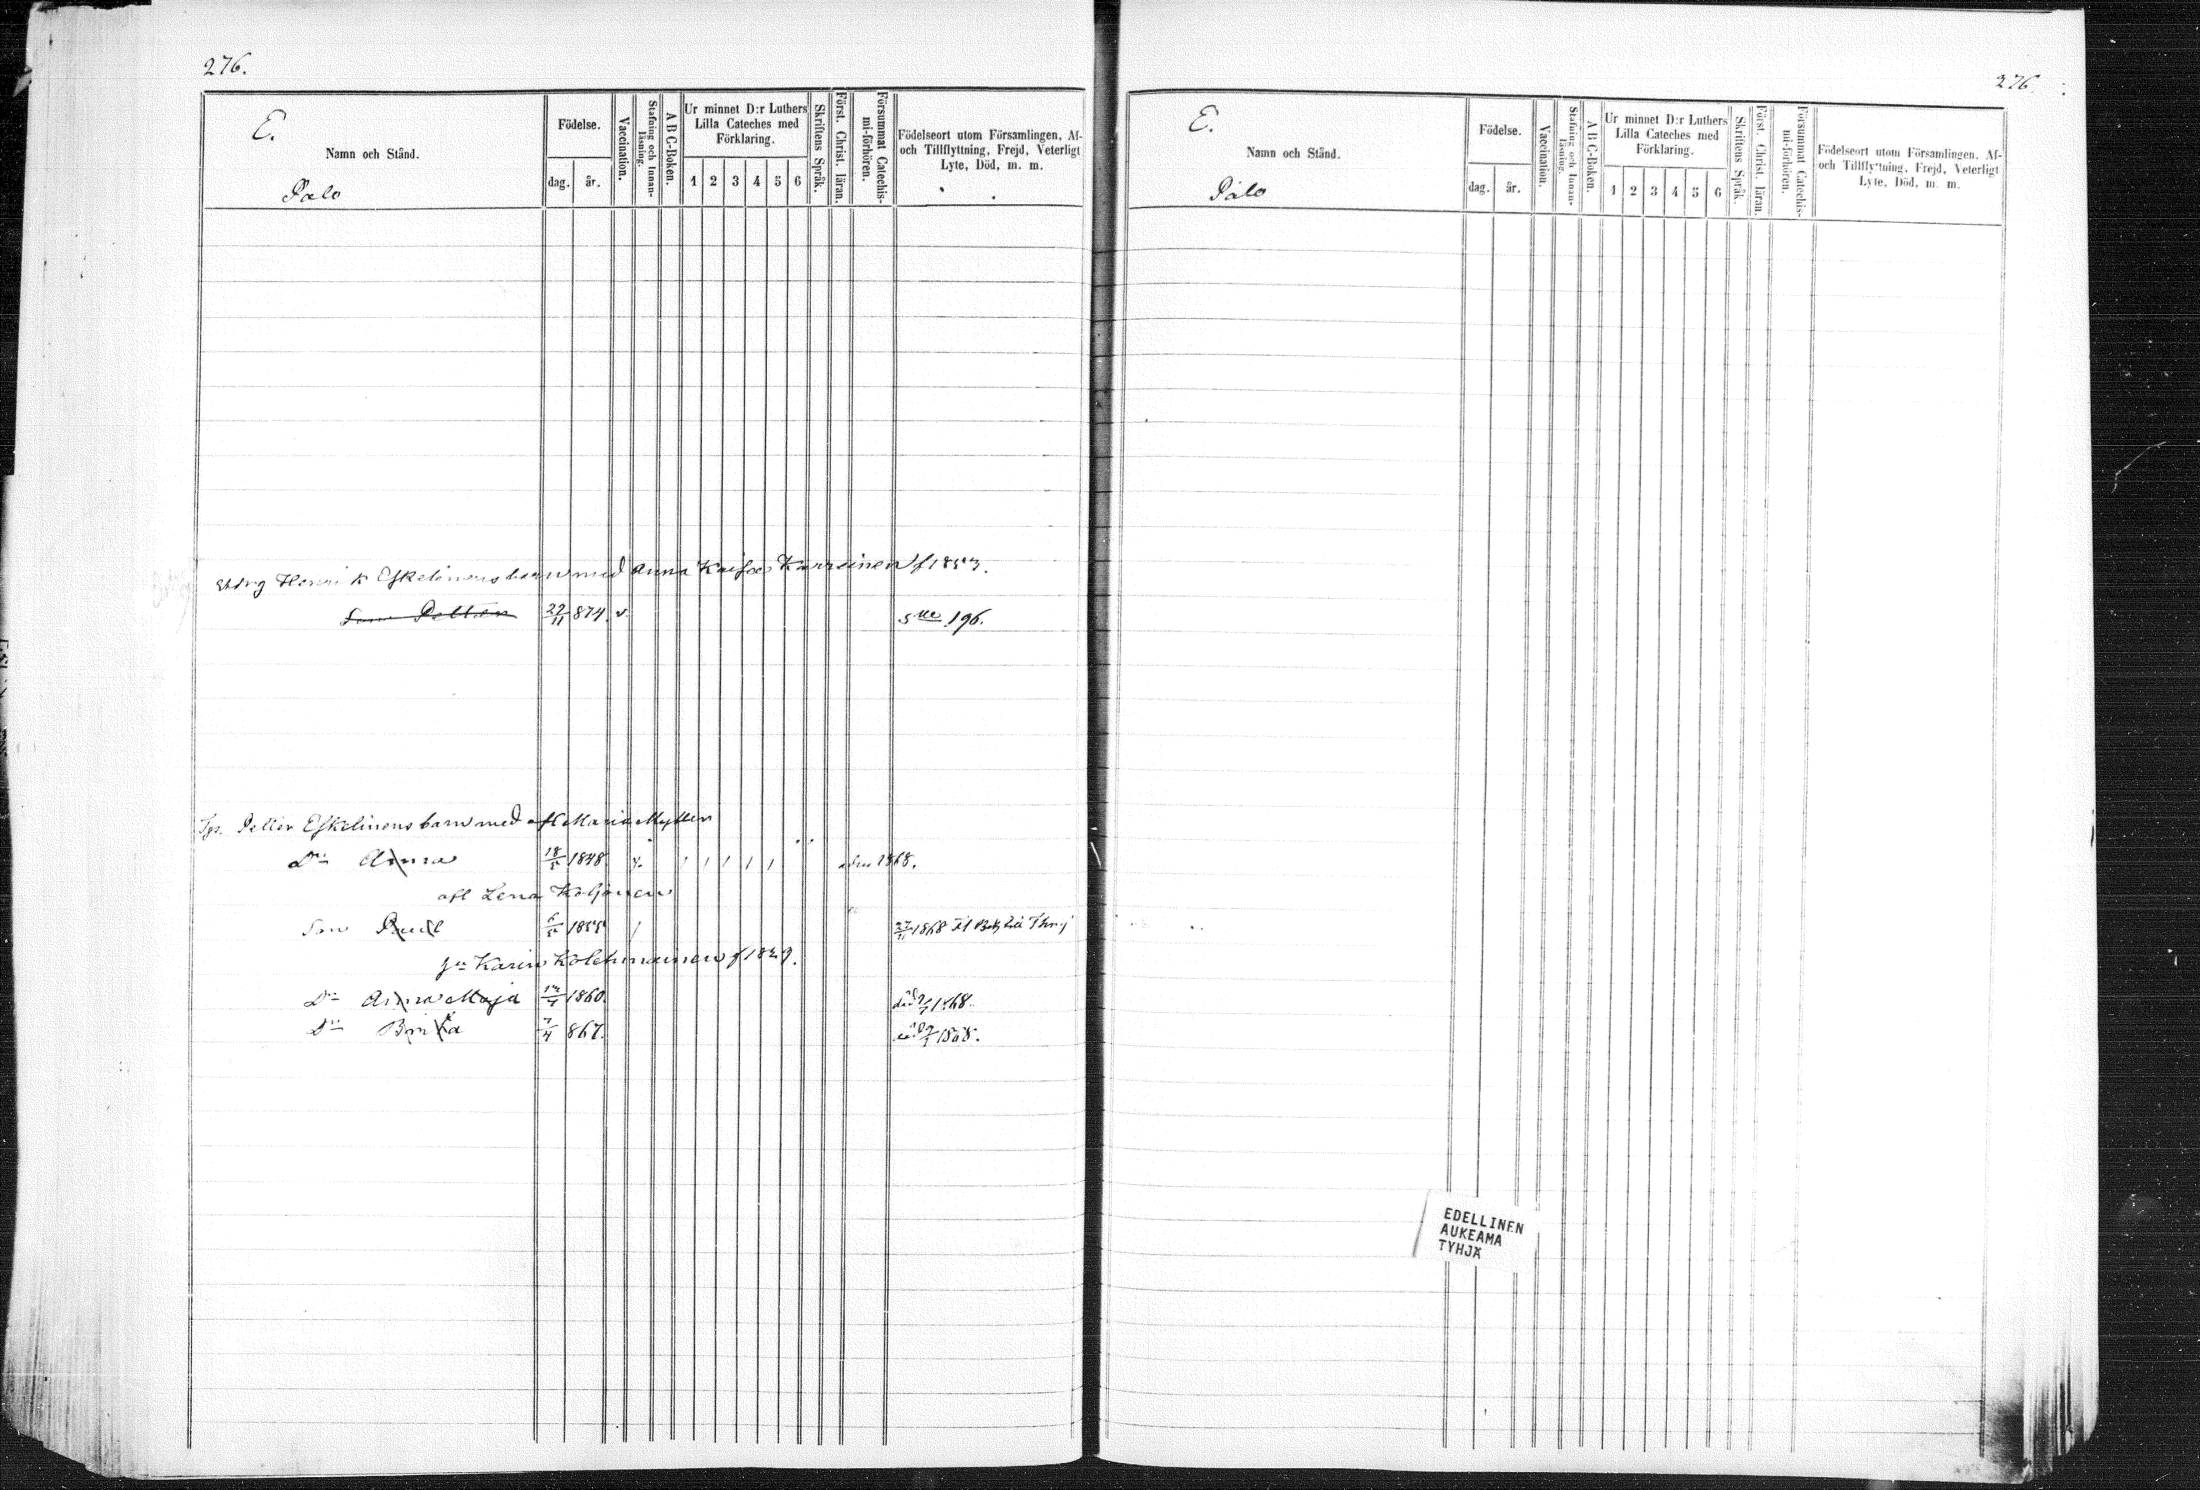 276.
E.
Namn och Stånd.
Palo
Födelse.
dag. år.
Vaccination.
Stafning och Innan-läsning.
A B C-Boken.
Ur minnet D:r Luthers
Lilla Cateches med
Förklaring.
1 2 3 4 5 6
Skriftens Språk.
Först. Christ. läran.
Försummat Catechis-mi-förhören.
Födelseort utom Församlingen, Af-
och Tillflyttning, Frejd, Veterligt
Lyte, Död, m. m.
Henrik Eskelinens barn med Anna Kaisa Karreinen f 1853.
Son Petter 22/11 874. v. 196.
Petter Eskelinens barn med afl Maria Mykkn
Dr Anna 18/5 1848 1 1 1 1 1 1868.
afl Lena Koljonen
Son Paul 6/5 1855 / 27/11 1868
Karin Kolehmainen f 1829.
Dr Anna Maja 1860. död 1868.
Dr Brita 7/4 867. död 1868.
276.
E.
Namn och Stånd.
Palo
Födelse.
dag. år.
Vaccination.
Stafning och Innan-läsning.
A B C-Boken.
Ur minnet D:r Luthers
Lilla Cateches med
Förklaring.
1 2 3 4 5 6
Skriftens Språk.
Först. Christ. läran.
Försummat Catechis-mi-förhören.
Födelseort utom Församlingen, Af-
och Tillflyttning, Frejd, Veterligt
Lyte, Död, m. m.
EDELLINEN
AUKEAMA
TYHJÄ